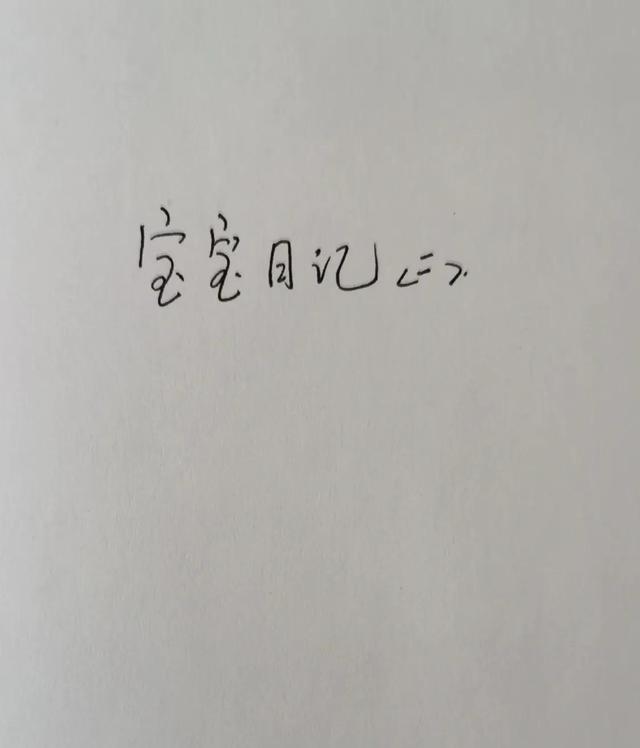 宝宝日记<二>